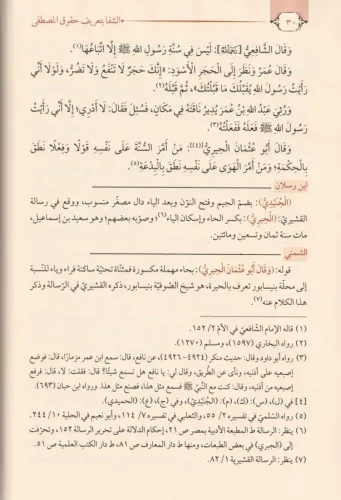 ٣٠ • الشفا بتعريف حقوق المصطفى
وَقَالَ الشَّافِعِيُّ [رَحِمَهُ اللهُ]: لَيْسَ فِي سُنَّةِ رَسُولِ اللهِ ﷺ إِلَّا اتِّبَاعُهَا(١).
وَقَالَ عُمَرُ وَنَظَرَ إِلَى الْحَجَرِ الْأَسْوَدِ: «إِنَّكَ حَجَرٌ لَا تَنْفَعُ وَلَا تَضُرُّ، وَلَوْلَا أَنِّي
رَأَيْتُ رَسُولَ اللهِ يُقَبِّلُكَ مَا قَبَّلْتُكَ»، ثُمَّ قَبَّلَهُ(٢).
وَرُئِيَ عَبْدُ اللهِ بْنُ عُمَرَ يُدِيرُ نَاقَتَهُ فِي مَكَانٍ، فَسُئِلَ فَقَالَ: لَا أَدْرِي؛ إِلَّا أَنِّي رَأَيْتُ
رَسُولَ اللهِ ﷺ فَعَلَهُ فَفَعَلْتُهُ(٣).
وَقَالَ أَبُو عُثْمَانَ الْحِيرِيُّ(٤): مَنْ أَمَّرَ السُّنَّةَ عَلَى نَفْسِهِ قَوْلًا وَفِعْلًا نَطَقَ
بِالْحِكْمَةِ؛ وَمَنْ أَمَّرَ الْهَوَى عَلَى نَفْسِهِ نَطَقَ بِالْبِدْعَةِ(٥).
ابن رسلان
(الْجُنَيْدِيُّ): بضم الجيم وفتح النون وبعد الياء دال مصغّر منسوب، ووقع في رسالة
القشيريّ: (الْحِيرِيّ): بكسر الحاء وإسكان الياء(٦)؛ وصوّبه بعضهم؛ وهو سعيد بن إسماعيل،
مات سنة ثمان وتسعين ومائتين.
الشمني
قوله: (وَقَالَ أَبُو عُثْمَانَ الْحِيرِيُّ): بحاء مهملة مكسورة فمثنّاة تحتيّة ساكنة فراء وياء للنّسبة
إلى محلّة بنيسابور تعرف بالحيرة، هو شيخ الصّوفيّة بنيسابور، ذكره القشيريّ في الرّسالة وذكر
هذا الكلام عنه(٧).
(١) قاله الإمام الشافعيّ في الأمّ ٢/ ١٥٢.
(٢) رواه البخاري (١٥٩٧)، ومسلم (١٢٧٠).
(٣) رواه أبو داود وقال: حديث منكر (٤٩٢٤-٤٩٢٦)، عن نافع، قال: سمع ابن عمر مزمارًا، قال: فوضع
إصبعيه على أذنيه، ونأى عن الطّريق، وقال لي: يا نافع هل تسمع شيئًا؟ قال: فقلت: لا، قال: فرفع
إصبعيه من أذنيه، وقال: كنت مع النّبيّ ﷺ فسمع مثل هذا، فصنع مثل هذا. ورواه ابن حبان (٦٩٣).
[٤] في (ل)، (س): (ك)، (م): (الْجُنَيْدِيّ)، وفي (ج)، (ع): (الحميدي).
(٥) رواه السّلميّ في تفسيره ٢/ ٥٥، والثعلبي في تفسيره ٧/ ١١٤، وأبو نعيم في الحلية ١٠/ ٢٤٤.
(٦) ينظر: الرسالة ط المطبعة الأدبية بمصر ص ٢١، إحكام الدلالة على تحرير الرسالة ١٥٢، وتحرّفت
إلى (الجبري) في بعض الطبعات، ومنها ط دار المعارف ص ٨١، ط دار الكتب العلمية ص ٥١.
(٧) ينظر: الرسالة القشيرية ١/ ٨٢.